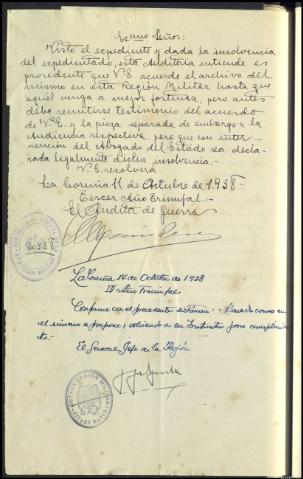 Excmo Señor:
Visto el expediente y dada la insolvencia
del expedientado, esta Auditoria entiende es
procedente que V.E. acuerde el archivo del
mismo en esta Región Militar hasta que
aquél venga a mejor fortuna, pero antes
debe remitirse testimonio del acuerdo
de V.E. y la pieza separada de embargo a la
Audiencia respectiva, para que con inter-
vención del Abogado del Estado sea decla-
rada legalmente dicha insolvencia.
V.E. resolverá
La Coruña 11 de Octubre de 1.938-
Tercer Año Triunfal
El Auditor de Guerra
La Coruña 14 de Octubre de 1938
III Año Triunfal
Conforme con el precedente dictamen,
en el mismo se propone; vuelva a su Instructor para cumplimien-
to.
El General Jefe de la Región